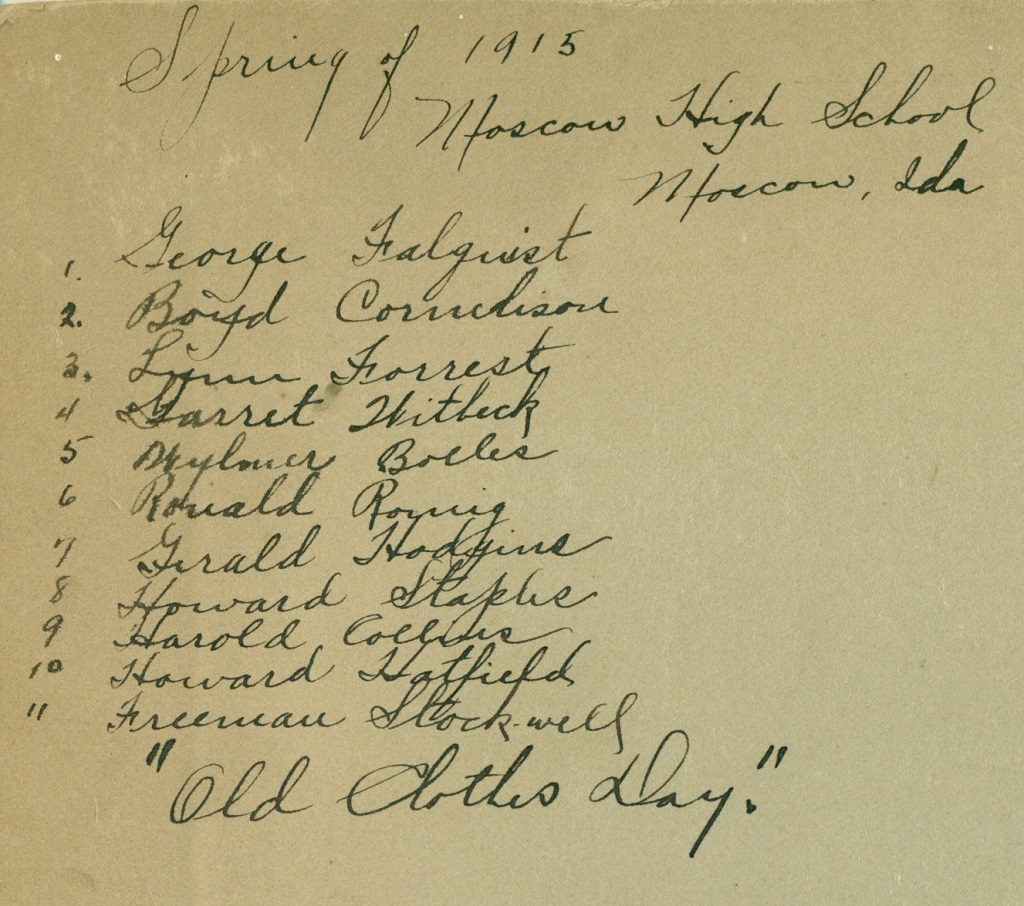 Spring of 1915
Moscow High School
Moscow, Ida
1. George Falquist
2. Boyd Cornelison
3. Lynn Forrest
4 Garret Witbeck
5 Wylmer Boeles
6 Ronald Romig
7 Gerald Hodgins
8 Howard Staples
9 Harold Collins
10 Howard Hatfield
11 Freeman Stock-well
"Old Clothes Day."